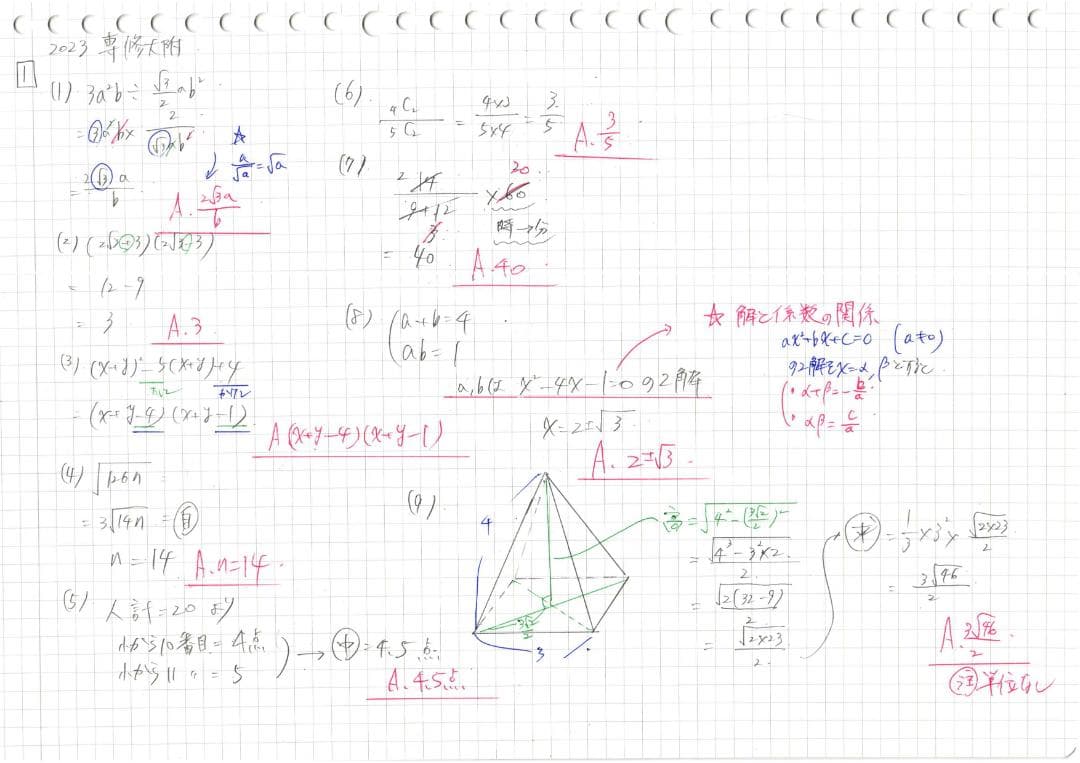 2023 専修大附
1
(1) 3a²b ÷ √3/2 ab²
= 3a²b × 2/√3ab²
☆ a/√a = √a
= 2√3a/b
A. 2√3a/b
(2) (2√3+3)(2√3-3)
= 12-9
= 3
A. 3
(3) (x+y)²-5(x+y)+4
= (x+y-4)(x+y-1)
A (x+y-4)(x+y-1)
(4) √126n
= 3√14n = 自
n=14
A. n=14
(5) 人計=20 より
小から10番目=4点
小から11 〃 = 5
→ 中=4.5点
A. 4.5点
(6) ₄C₂/₅C₂ = 4×3/5×4 = 3/5
A. 3/5
(7) 2 14/9+12 ×60 20
3 時→分
= 40
A. 40
(8) a+b=4
ab=1
a,bは x²-4x-1=0 の2解
x=2±√3
A. 2±√3
☆ 解と係数の関係
ax²+bx+c=0 (a≠0)
の2解をx=α,βとすると
・α+β=-b/a
・αβ=c/a
(9)
4
3√2/2
3
高=√4²-(3√2/2)²
= √4³-3²×2/2
= √2(32-9)/2
= √2×23/2
求=1/3×3²×√2×23/2
= 3√46/2
A. 3√46/2
注 単位なし